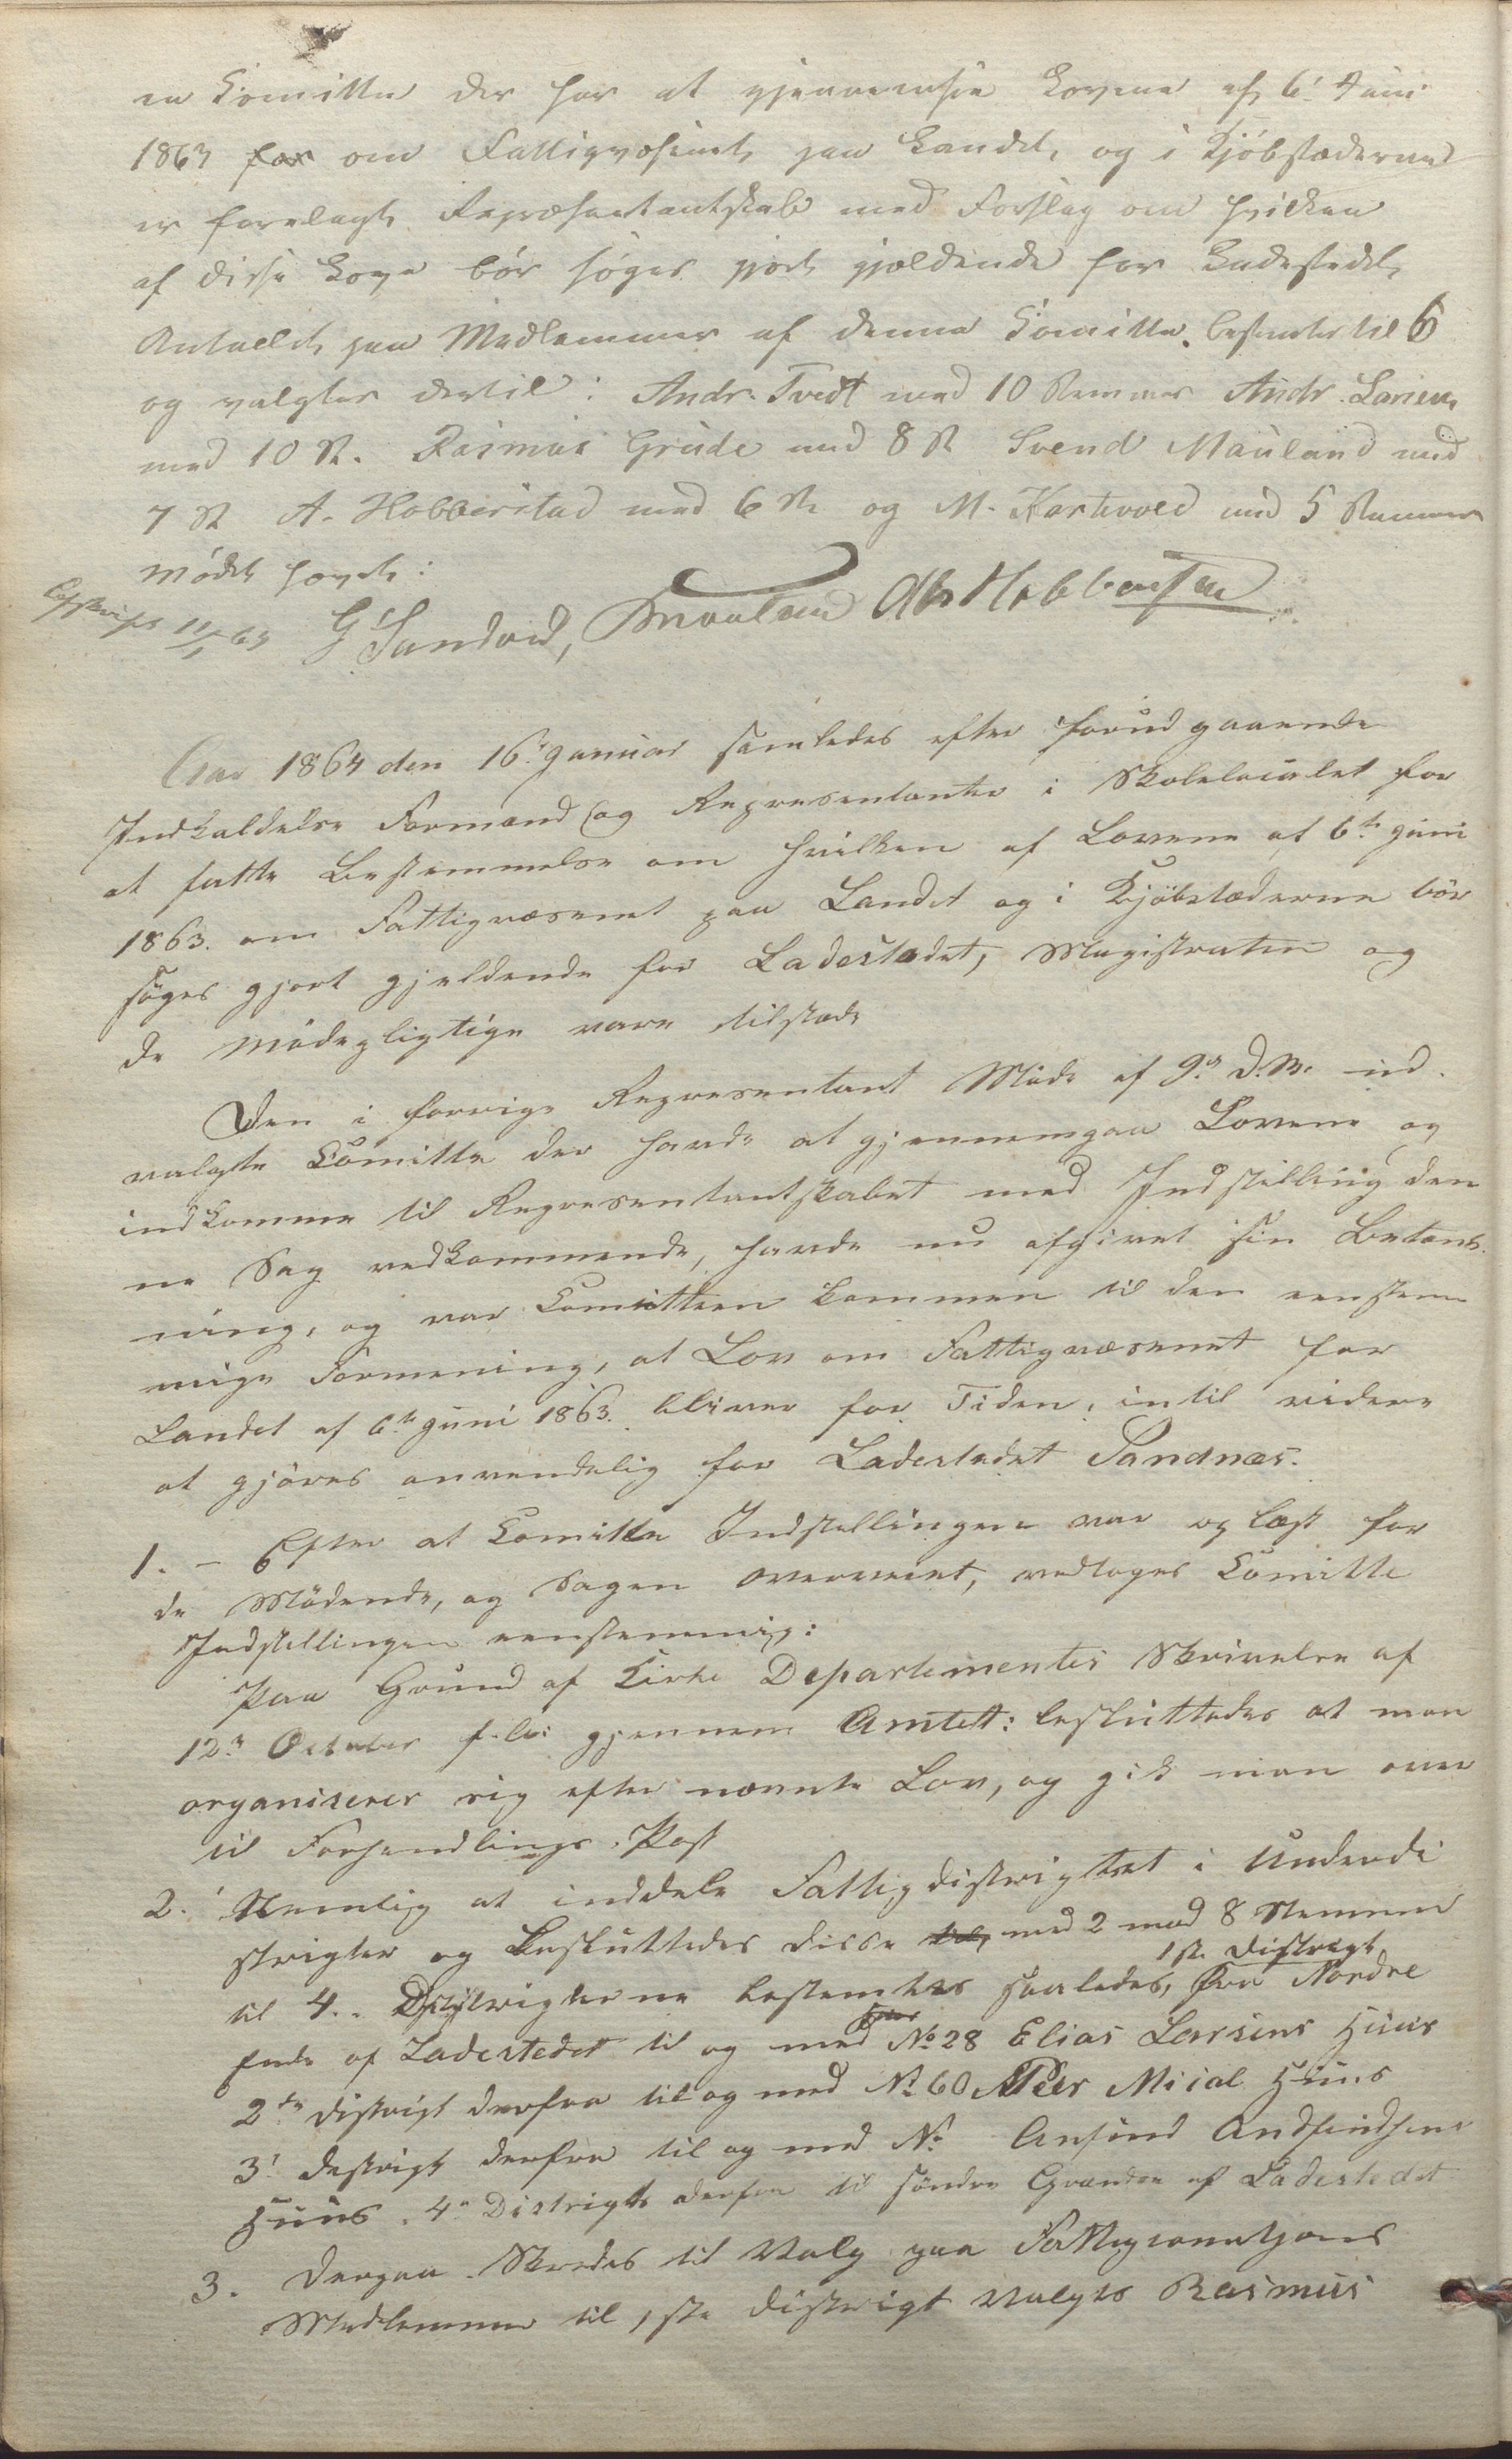 en Comitte der har at gjennemsee Lovene af 6' Juni
1863 for om Fattigvæsenet paa Landet, og i Kjøbstæderne
er forelagt Repræsentantskab med Forslag om hvilken
af disse Love bør søges gjort gjældende for Ladestedet,
Antallet paa Medlemmer af denne Comitte bestemtes til 6
og valgtes dertil: Andr. Tvedt med 10 Stemmer Andr. Larsen
med 10 St. Rasmus Grude med 8 St Svend Mauland med
7 St A. Hobberstad med 6 St og M. Hartvold med 5 Stemmer
Mødet hævet:
G Sandved, SMauland AAHobberstad
Aar 1864 den 16' Januar samledes efter forudgaaende
Indkaldelse Formænd og Representanter i Skolelocalet for
at fatte Bestemmelse om hvilken af Lovene af 6te Juni
1863. om Fattigvæsenet paa Landet og i Kjøbstæderne bør
søges gjort gjeldende for Ladestædet, Magistraten og
de Mødepligtige vare tilstæde
Den i forrige Representant Møde af 9de d.M. ud.
valgte Comitte der havde at gjennemgaa Lovene og
indkomme til Representantskabet med Indstilling den
ne Sag vedkommende, havde nu afgivet sin Betænk.
ning, og var Comitteen kommen til den eenstem
mige Formening, at Lov om Fattigvæsenet for
Landet af 6te Juni 1863. bliver for Tiden, intil videre
at gjøres anvendelig for Ladestedet Sandnæs.
1. - Efter at Comitte Indstillingen var oplæst for
de Mødende, og Sagen overveiet, vedtoges Comitte
Indstillingen eenstemmig:
Paa Grund af Kirke Departementes Skrivelse af
12te October f.A: gjennem Amtet: besluttedes at man
organiserer sig efter nævnte Lov, og gik man over
til Forhandlings Post
2.' Nemlig at inddele Fattigdistrigtet i Underdi
strigter og besluttedes disse med 2 mod 8 Stemmer
1ste Distrigt
til 4.. Distrigterne bestemtes saaledes, fra Nordre
Ende af Ladestedet til og med No 28 Elias Larsens Huus
2de Distrigt derfra til og med No 60 Peer Mical Huus
3' Destrigt derfra til og med No Ansind Andsindsens
Huus. 4e Distrigt derfra til søndre Grændse af Ladestedet
3. Derpaa Skredes til Valg paa Fattigcomitjons
Medlemmer til 1ste Distrigt valgtes Rasmus